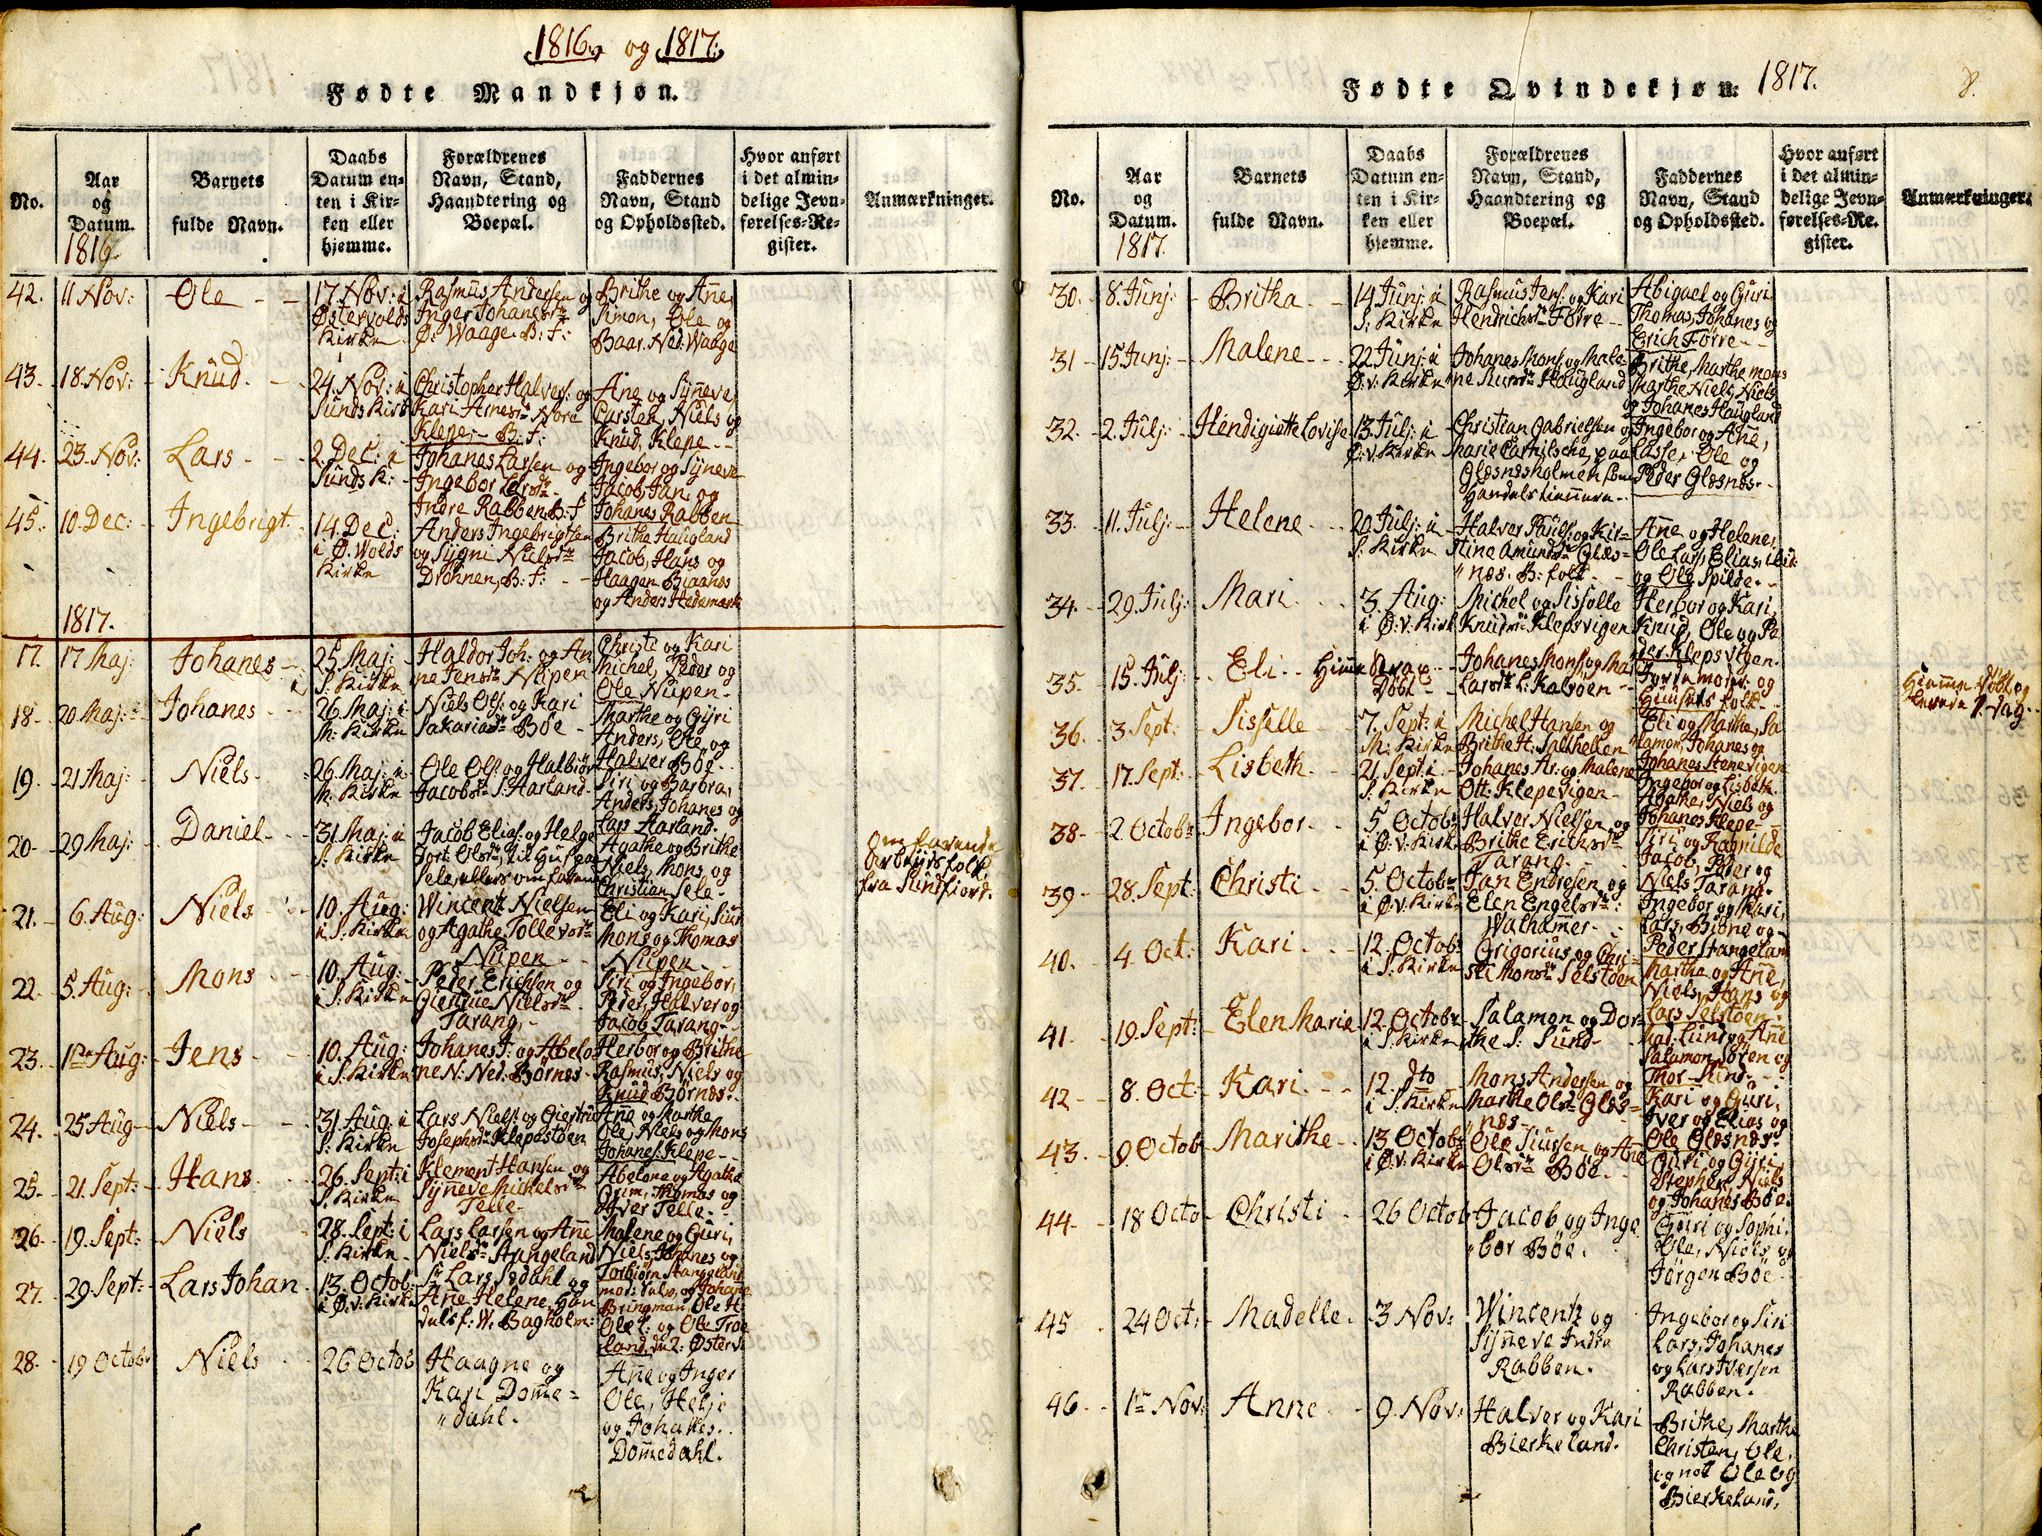 1816 og 1817:
Fødte Mandkjøn.
No.
Aar
og
Datum.
1816.
Barnets
fulde Navn.
Daabs
Datum en-
ten i Kir-
ken eller
hjemme.
Forældrenes
Navn, Stand,
Haandtering og
Boepæl.
Faddernes
Navn, Stand
og Opholdssted.
Hvor anført
i det almin-
delige Jevn-
førelses-Re-
gister.
Anmærkninger.
42. 11 Nov: Ole
17. Nov: i
Østervolds
Kirke
Rasmus Andersen og
Inger Johansdr
Ø: Waage. B: F:
Brithe og Anne,
Simon, Ole og
Baar. Ned: Waage
43. 18. Nov: Knud.
24. Nov: i
Sunds Kirk
Christopher Halvors: og
Kari Arnesdr Nore
Klepe. B: F:
Ane og Synneve,
Carsten, Niels og
Knud, Klepe
44. 23. Nov: Lars
2. Dec: i
Sunds K:
Johanes Larsen og
Ingebor Larsdr
Indre Rabben. B: f
Ingebor og Synneve
Jacob, Jan, og
Johanes Rabben
45. 10. Dec: Ingebrigt.
14. Dec:
i Ø. Wolds
Kirke
Anders Ingebrigtsen
og Sygni Nielsdr
Drønnen, B: f:
Brithe Haugland
Jacob, Hans og
Haagen Biaanes
og Anders Hedemark
1817.
17. 17 Maj: Johanes
25. Maj: i
S: Kirke
Haldor Joh: og An
ne Jensdr Nupen
Christi og Kari
Michel, Peder og
Ole Nupen.
18. 20 Maj: Johanes
26. Maj: i
M: Kirke
Niels Ols: og Kari
Sakariasdr Bøe
Marthe og Gyri
Anders, Ole og
Halver Bøe
19. 21 Maj: Niels
26. Maj: i
M: Kirke
Ole Ols: og Halbiør
Jacobsdr S: Harland
Siri og Barbra,
Anders, Johanes og
Lars Harland
20. 29 Maj: Daniel
31 Maj: i
S: Kirke
Jacob Elias: og Helge
Jort: Olsdr, til Huse paa
Sele, ellers omfarende
Agathe og Brithe
Niels, Mons, og
Christian Sele
Omfarende
Arbeydsfolk
fra Sundfiord.
21. 6. Aug: Niels
10. Aug:
i S: Kirke
Wincentz Nielsen
og Agathe Tollevsdr
Nupen
Eli og Kari, Siur
Mons og Thomas
Nupen
22. 5. Aug: Mons
10. Aug:
i S: Kirke
Peder Erichsen og
Giertrue Nielsdr
Tarang,
Siri og Ingebor,
Peder, Halver og
Jacob Tarang
23. 1ste Aug: Jens
10. Aug:
i S. Kirke
Johanes J: og Abelo
ne N: Ned: Børnes
Herbor og Brithe
Rasmus, Niels og
Knud Børnes.
24. 25 Aug Niels
31. Aug: i
S: Kirke
Lars Niels: og Giertrud
Josephsdr Klepestøen
Ane og Marthe
Ole, Niels og Mons
Johanes: Klepe
25. 21. Sept: Hans
26. Sept: i
S. Kirke
Klement Hansen og
Synneve Mickelsdr
Telle
Abelone og Agathe
Grim, Thomas og
Iver Telle
26. 19. Sept: Niels
28. Sept: i
S. Kirke
Lars Larsen og Ane
Nielsdr Stangeland
Malene og Guri,
Niels Johanes og
Torbiørn Stangeland
27. 29. Sept: Lars Johan
13. Octob:
i Ø: v: Kirke
Sr Lars Sedahl og
Ane Helene, Han
dels f: W: Bagholm:
mod: Sulv, og Johane
Bringman, Ole H:
Ole L: og Ole Troe
land, Du 2: Østerv:
28. 19 Octobr Niels
26 Octob
Haagne og
Kari Domme=
"dahl.
Anne og Inger
Ole, Helje
og Johanes.
Dommedahl.
Fødte Qvindekjøn: 1817.
8.
No.
Aar
og
Datum.
1817.
Barnets
fulde Navn.
Daabs
Datum en-
ten i Kir-
ken eller
hjemme.
Forældrenes
Navn, Stand,
Haandtering og
Boepæl.
Faddernes
Navn, Stand
og Opholdssted.
Hvor anført
i det almin-
delige Jevn-
førelses-Re-
gister.
Anmærkninger.
30. 8. Junj: Britha
14 Junj: i
S: Kirke
Rasmus Jens: og Kari
Hendrichsdr Førre
Abigael og Guri
Thomas, Johanes og
Erich Førre
31 15 Junj: Malene
22. Junj: i
Ø: v: Kirke
Johanes Mons: og Male
ne Siursdr Haugland
Brithe, Marthe Mons
Marthe Niels, Niels
og Johanes Haugland
32. 2. Julj: Hendigiette Lovise
13. Julj: i
Ø: v: Kirke
Christian Gabrielsen og
Marie paa
Glesnæsholmen som
Handelstiennere
Ingebor og Ane,
Lasse, Ole og
Peder Glesnæs.
33. 11. Julj: Helene
20 Julj: i
S: Kirke
Halver Poulf: og Kir=
stine Amundsdr Glæs=
"næs. B: folk
Ane og Helene,
Ole Lars, Elias,
og Ole Spilde.
34. 29. Julj: Mari
3. Aug:
i Ø: v: Kirk
Michel og Sisselle
Knudsdr Klepsvigen
Herbor og Kari,
Knud, Ole og Pe
der Klepsvigen.
35. 15. Julj: Eli
Hiemme
Døbt
Johanes Mons: og Mar
Larsdr L: Kalsøen
Jordemoder og
Huusets folk
Hiemme Døbt og
levede 1. Dag.
36. 3 Sept: Sisselle
7. Sept: i
M: Kirke
Michel Hansen og
Brithe H: Salthellen
Eli og Marthe, Sa
lamon, Johanes og
Johanes Stenevigen
37. 17. Sept: Lisbeth
21 Sept: i
S: Kirke
Johanes Ar: og Malene
Ott: Klepevigen
Ingebor og Lisbeth
Agathe, Niels og
Johanes Klepe
38. 2 Octobr Ingebor
5 Octobr
i Ø: v: Kirk
Halver Nielsen, og
Brithe Erichsdr
Tarang.
Siri og Ragnilde
Jacob, Peder og
Niels Tarang.
39. 28. Sept: Christi
5. Octobr
i Ø: v: Kirke
Jan Endresen og
Elen Engelsdr:
Walhammer
Ingebor og Mari,
Lars, Biørne og
Peder Stangeland
40. 4. Oct: Kari
12. Octobr
i S: Kirke
Grigorius og Chri=
sti Monsdr Selstøen
Marthe og Ane,
Niels, Hans og
Lars Selstøen
41. 19. Sept: Elen Maria
12. Octobr
i S: Kirke
Salamon og Dor=
the S: Sund
Mad: Lund og Ane
Salamon, Søren og
Thor Sund
42 8. Oct: Kari
12. dto
i S: Kirke
Mons Andersen og
Marthe Olsdr Glæs=
"næs
Kari og Guri,
Iver og Elias og
Ole Glæsnæs.
43. 9. Octob Marithe
13 Octobr
i Ø: v: Kirke
Ole Siursen og Ane
Olsdr Bøe
Guri og Gyri,
Stephen, Niels
og Johanes Bøe.
44. 18 Octo Christi
26 Octob
Jacob og Inge
"bor Bøe.
Guri og Sophi.
Ole, Niels og
Jørgen Bøe
45 24 Oct: Madelle
3 Nov:
Wincentz og
Synneve Indre
Rabben.
Ingebor og Siri
Lars, Johanes
og Lars Iversen
Rabben.
46 1ste Nov: Anne
9. Nov:
Halver og Kari
Bierkeland.
Brithe, Marthe
Christen, Ole,
og not Ole og
Bierkeland,